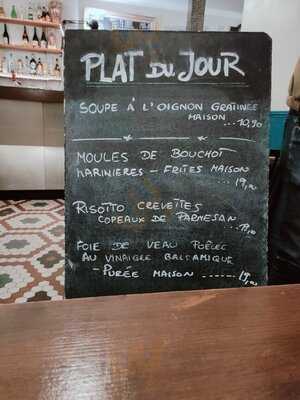 PLAT DU JOUR
SOUPE A L'OIGNON GRATINEE
MAISON
...10,90
MOULES DE BOUCHOT
MARINIERES - FRITES MAISON
...19,00
RISOTTO CREVETTES
COPEAUX DE PARMESAN
FOIE DE VEAU POÊLÉE
AU VINAIGRE BALSAMIQUE
- PURÉE MAISON ------19,00